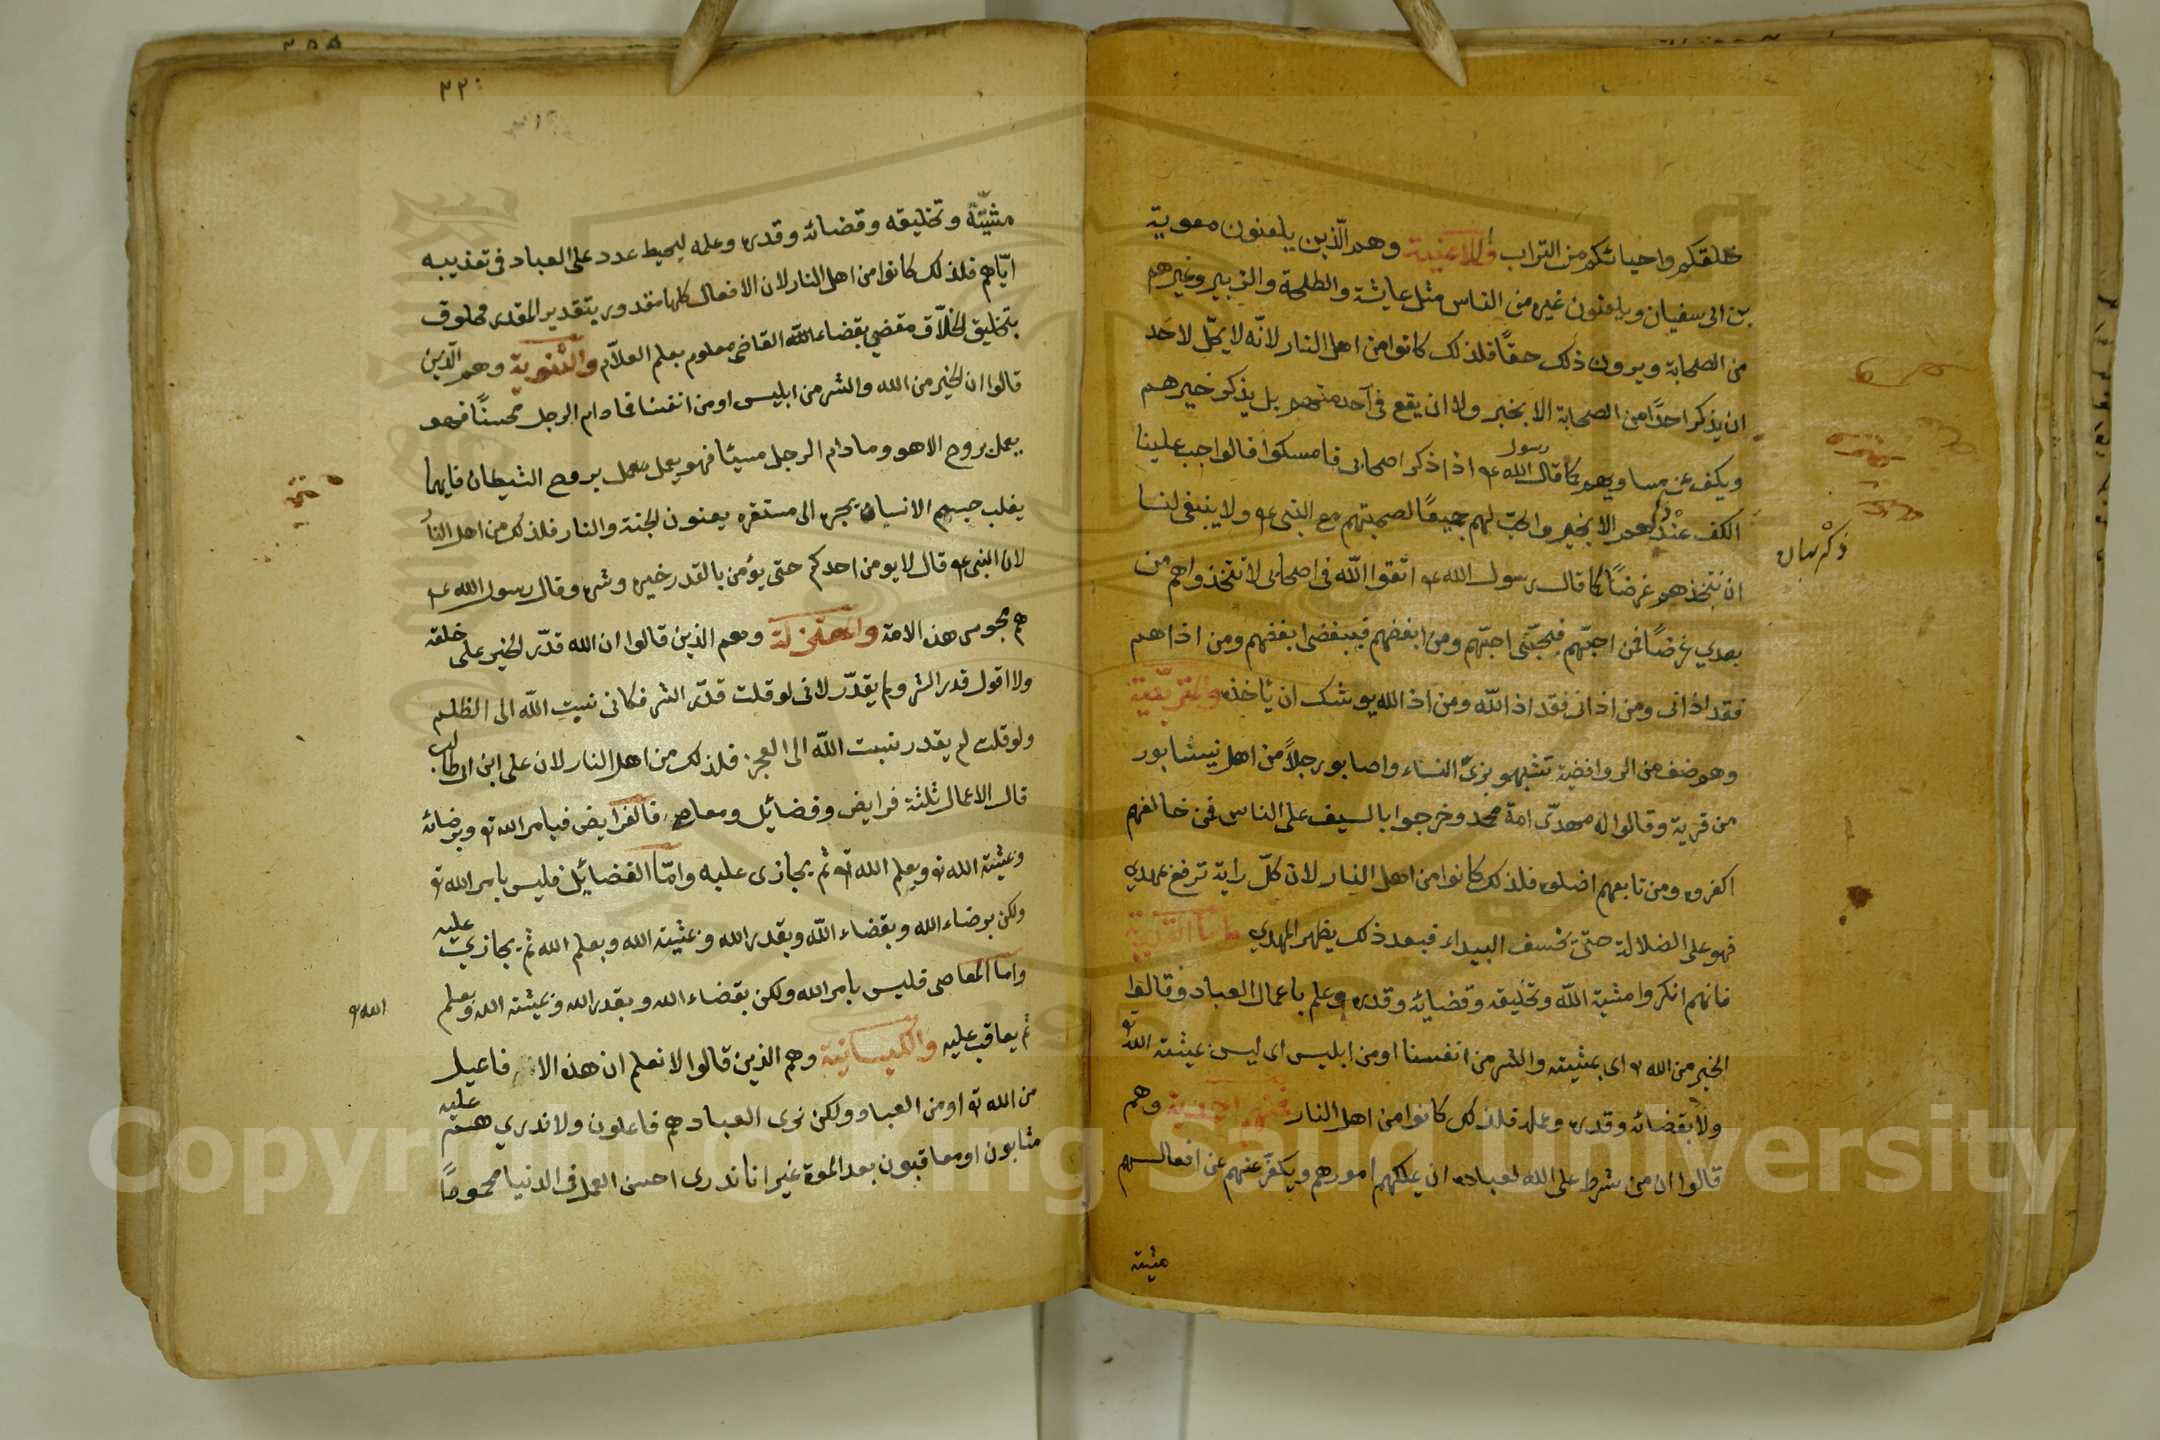 خلقكم واحيائكم من التراب واللاعنية وهم الّذين يلعنون معوية
بن ابى سفيان ويلعنون غيره من الناس مثل عايشة والطلحة والزبير وغيرهم
من الصحابة ويرون ذلك حقًا فلذلك كانوا من اهل النار لانّه لا يحلّ لاحد
ان يذكر احدًا من الصحابة الا بخير ولا ان يقع فى احد منهم بل يذكر خيرهم
ويكف عن مساويهم كما قال رسول الله عم اذا ذكر اصحابى فامسكوا قالوا جب علينا
الكف عند ذكرهم الا بخير والحبّ لهم جميعًا لصحبتهم مع النبى عم ولا ينبغى لنا
ذكر بيان
ان نتخذهم غرضًا كما قال رسول الله عم اتقوا اللّه فى اصحابى لا تتخذواهم من
بعدي غرضًا فمن احبّهم فبحبّى احبّهم ومن ابغضهم فببغضى ابغضهم ومن اذاهم
فقد اذانى ومن اذانى فقد اذ اللّه ومن اذ الله يوشك ان يأخذه
وهو صنف من الروافضية تشبهو بزىّ النساء واصابو رجلاً من اهل نيشابور
من قرية وقالوا له مهدىّ امة محمد وخرجوا بالسيف على الناس فمن خالفهم
اكفروه ومن تابعهم اضلوه فلذلك كانوا من اهل النار لان كلّ راية ترفع بمهدي
فهو على الضلالة حتى تخسف البيداء فبعد ذلك يظهر المهدي واما القدرية
فانهم انكروا مشية اللّه وتخليقه وقضائه وقدره وعلم باعمال العباد وقالوا
الخير من الله تع اى بمشيته والشر من انفسنا او من ابليس اى ليس بمشية اللّه تع
ولا بقضائه وقدره وعمله فلذلك كانوا من اهل النار وهم
قالوا ان من شرط على الله لعباده ان يملكهم امورهم ويكفر عنهم عن افعالهم
مشيته
٣٢٠
مشيّته وتخليقه وقضائه وقدره وعلمه ليحيط عدد على العباد فى تعذيبه
ايّاهم فلذلك كانوا من اهل النار لان الافعال كلها مقدور بتقدير المقدر مخلوق
بتخليق الخلاّق مقضي بقضاء اللّه القاضى معلوم بعلم العلاّم والثنوية وهم الّذين
قالوا ان الخير من الله والشر من ابليس او من انفسنا فما دام الرجل محسنًا فهو
يعمل بروح الاهو وما دام الرجل مسيئا فهو يعمل عمل بروح الشيطان فايهما
يغلب جسم الانسان يجره الى مستقره يعنون الجنة والنار فلذلك من اهل النار
لان النبى عم قال لا يومن احدكم حتى يؤمن بالقدر خيره وشره وقال رسول الله عم
هم مجوس هذه الامة والمعتزلة وهم الذين قالوا ان الله قدّر الخير على خلقه
ولا اقول قدر الشر ولم يقدّر لانى لو قلت قدّر الشر فكانى نسبت اللّه الى الظلم
ولو قلت لم يقدر نسبت اللّه الى العجز فلذلك من اهل النار لان على ابن ابى طالب
قال الاعمال ثلثة فرايض وفضائل ومعاصى فالفرايض فبامر الله تع وبرضائه
وبمشية الله تع وبعلم الله تع ثم يجازى عليه وامّا الفضائل فليس بامر الله تع
ولكن برضاء الله وبقضاء اللّه وبقدر الله وبمشية الله وبعلم الله ثم يجازي عليه
واما المعاصى فليس بامر الله ولكن بقضاء الله وبقدر الله وبمشية الله وبعلم
الله تع
ثم يعاقب عليه والكيسانية وهم الذين قالوا لا نعلم ان هذه الافاعيل
من الله تع او من العباد ولكن نرى العباد هم فاعلون ولا ندري هم عليه
مثابون او معاقبون بعد الموة غير انا ندرى احسن العمل فى الدنيا محمودًا